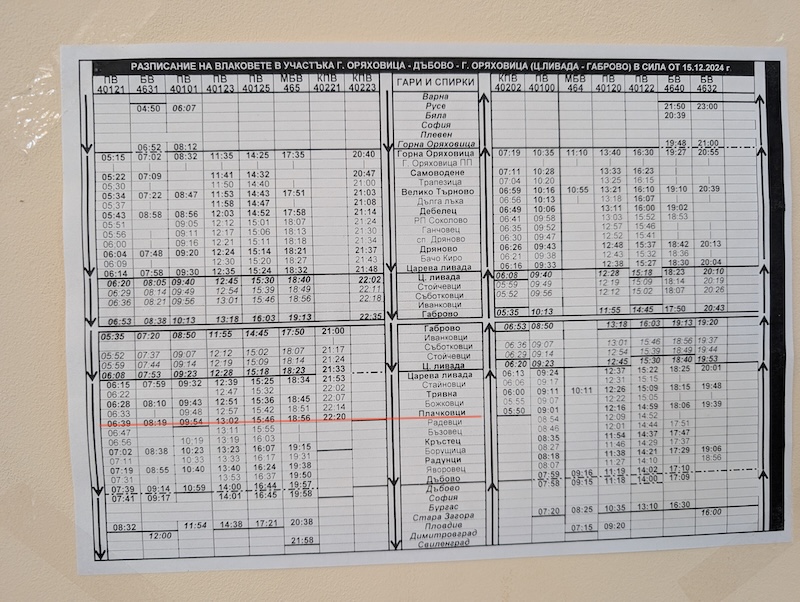 РАЗПИСАНИЕ НА ВЛАКОВЕТЕ В УЧАСТЪКА Г. ОРЯХОВИЦА - ДЪБОВО - Г. ОРЯХОВИЦА (Ц.ЛИВАДА - ГАБРОВО) В СИЛА ОТ 15.12.2024 г
ПВ БВ ПВ ПВ ПВ МБВ КПВ КПВ ГАРИ И СПИРКИ КПВ ПВ МБВ ПВ ПВ БВ БВ
40121 4631 40101 40123 40125 465 40221 40223 40202 40100 464 40120 40122 4640 4632
Варна
04:50 06:07 Русе 21:50 23:00
Бяла 20:39
София
Плевен
06:52 08:12 Горна Оряховица 19:48 21:00
05:15 07:02 08:32 11:35 14:25 17:35 20:40 Горна Оряховица 07:19 10:35 11:10 13:40 16:30 19:27 20:55
Г. Оряховица ПП
05:22 07:09 11:41 14:32 20:47 Самоводене 07:11 10:28 13:33 16:23
05:30 11:50 14:40 21:00 Трапезица 07:04 10:20 13:25 16:15
05:34 07:22 08:47 11:53 14:43 17:51 21:03 Велико Търново 06:59 10:16 10:55 13:21 16:10 19:10 20:39
05:37 11:58 14:47 21:08 Дълга лъка 06:56 10:13 13:18 16:07
05:43 08:58 08:56 12:03 14:52 17:58 21:14 Дебелец 06:49 10:06 13:11 16:00 19:02
05:51 09:05 12:12 15:01 18:07 21:24 РП Соколово 06:41 09:58 13:03 15:52 18:53
05:56 09:11 12:17 15:06 18:13 21:30 Ганчовец 06:35 09:52 12:57 15:46
06:00 09:16 12:21 15:11 18:18 21:34 сп. Дряново 06:30 09:47 12:52 15:41
06:04 07:48 09:20 12:24 15:14 18:21 21:37 Дряново 06:26 09:43 12:48 15:37 18:42 20:13
06:09 12:30 15:20 18:27 21:43 Бачо Киро 06:21 09:38 12:43 15:32 18:36
06:14 07:58 09:30 12:35 15:24 18:32 21:48 Царева ливада 06:16 09:33 12:38 15:27 18:30 20:04
06:20 08:05 09:40 12:45 15:30 18:40 22:02 Ц. ливада 06:08 09:40 12:28 15:18 18:23 20:10
06:29 08:14 09:49 12:54 15:39 18:49 22:11 Стойчевци 05:59 09:49 12:19 15:09 18:14 20:19
06:36 08:21 09:56 13:01 15:46 18:56 22:18 Съботковци 05:52 09:56 12:12 15:02 18:07 20:26
Иванковци
06:53 08:38 10:13 13:18 16:03 19:13 22:35 Габрово 05:35 10:13 11:55 14:45 17:50 20:43
05:35 07:20 08:50 11:55 14:45 17:50 21:00 Габрово 06:53 08:50 13:18 16:03 19:13 19:20
Иванковци
05:52 07:37 09:07 12:12 15:02 18:07 21:17 Съботковци 06:36 09:07 13:01 15:46 18:56 19:37
05:59 07:44 09:14 12:19 15:09 18:14 21:24 Стойчевци 06:29 09:14 12:54 15:39 18:49 19:44
06:08 07:53 09:23 12:28 15:18 18:23 21:33 Ц. ливада 06:20 09:23 12:45 15:30 18:40 19:53
06:15 07:59 09:32 12:39 15:25 18:34 21:53 Царева ливада 06:13 09:24 12:37 15:22 18:25 20:01
06:22 12:47 15:32 22:02 Стайновци 06:06 09:17 12:31 15:15
06:28 08:10 09:43 12:51 15:36 18:45 22:07 Трявна 06:00 09:11 10:11 12:26 15:09 18:15 19:48
06:33 09:48 12:57 15:42 18:51 22:14 Божковци 05:55 09:07 12:22 15:05
06:39 08:19 09:54 13:02 15:46 18:56 22:20 Плачковци 05:50 09:01 12:16 14:59 18:06 19:39
06:47 13:11 15:55 Радевци 08:54 12:09 14:52
06:56 10:19 13:19 16:03 Бъзовец 08:46 12:01 14:44 17:51
07:02 08:38 10:23 13:23 16:07 19:15 Кръстец 08:35 11:54 14:37 17:47
07:11 10:33 13:33 16:17 19:31 Борущица 08:27 11:46 14:29 17:37
07:19 08:55 10:40 13:40 16:24 19:38 Радунци 08:18 11:38 14:21 17:29 19:06
07:31 13:53 16:37 19:50 Яворовец 08:08 11:27 14:10 18:56
07:39 09:14 10:59 14:00 16:44 19:57 Дъбово 07:59 09:16 11:19 14:02 17:10
07:41 09:17 14:01 16:45 19:58 Дъбово 07:58 09:15 11:18 14:00 17:09
София
Бургас
08:32 11:54 14:38 17:21 20:38 Стара Загора 07:20 08:25 10:35 13:10 16:30
12:00 Пловдив 16:00
Димитровград 07:15 09:20
21:58 Свиленград